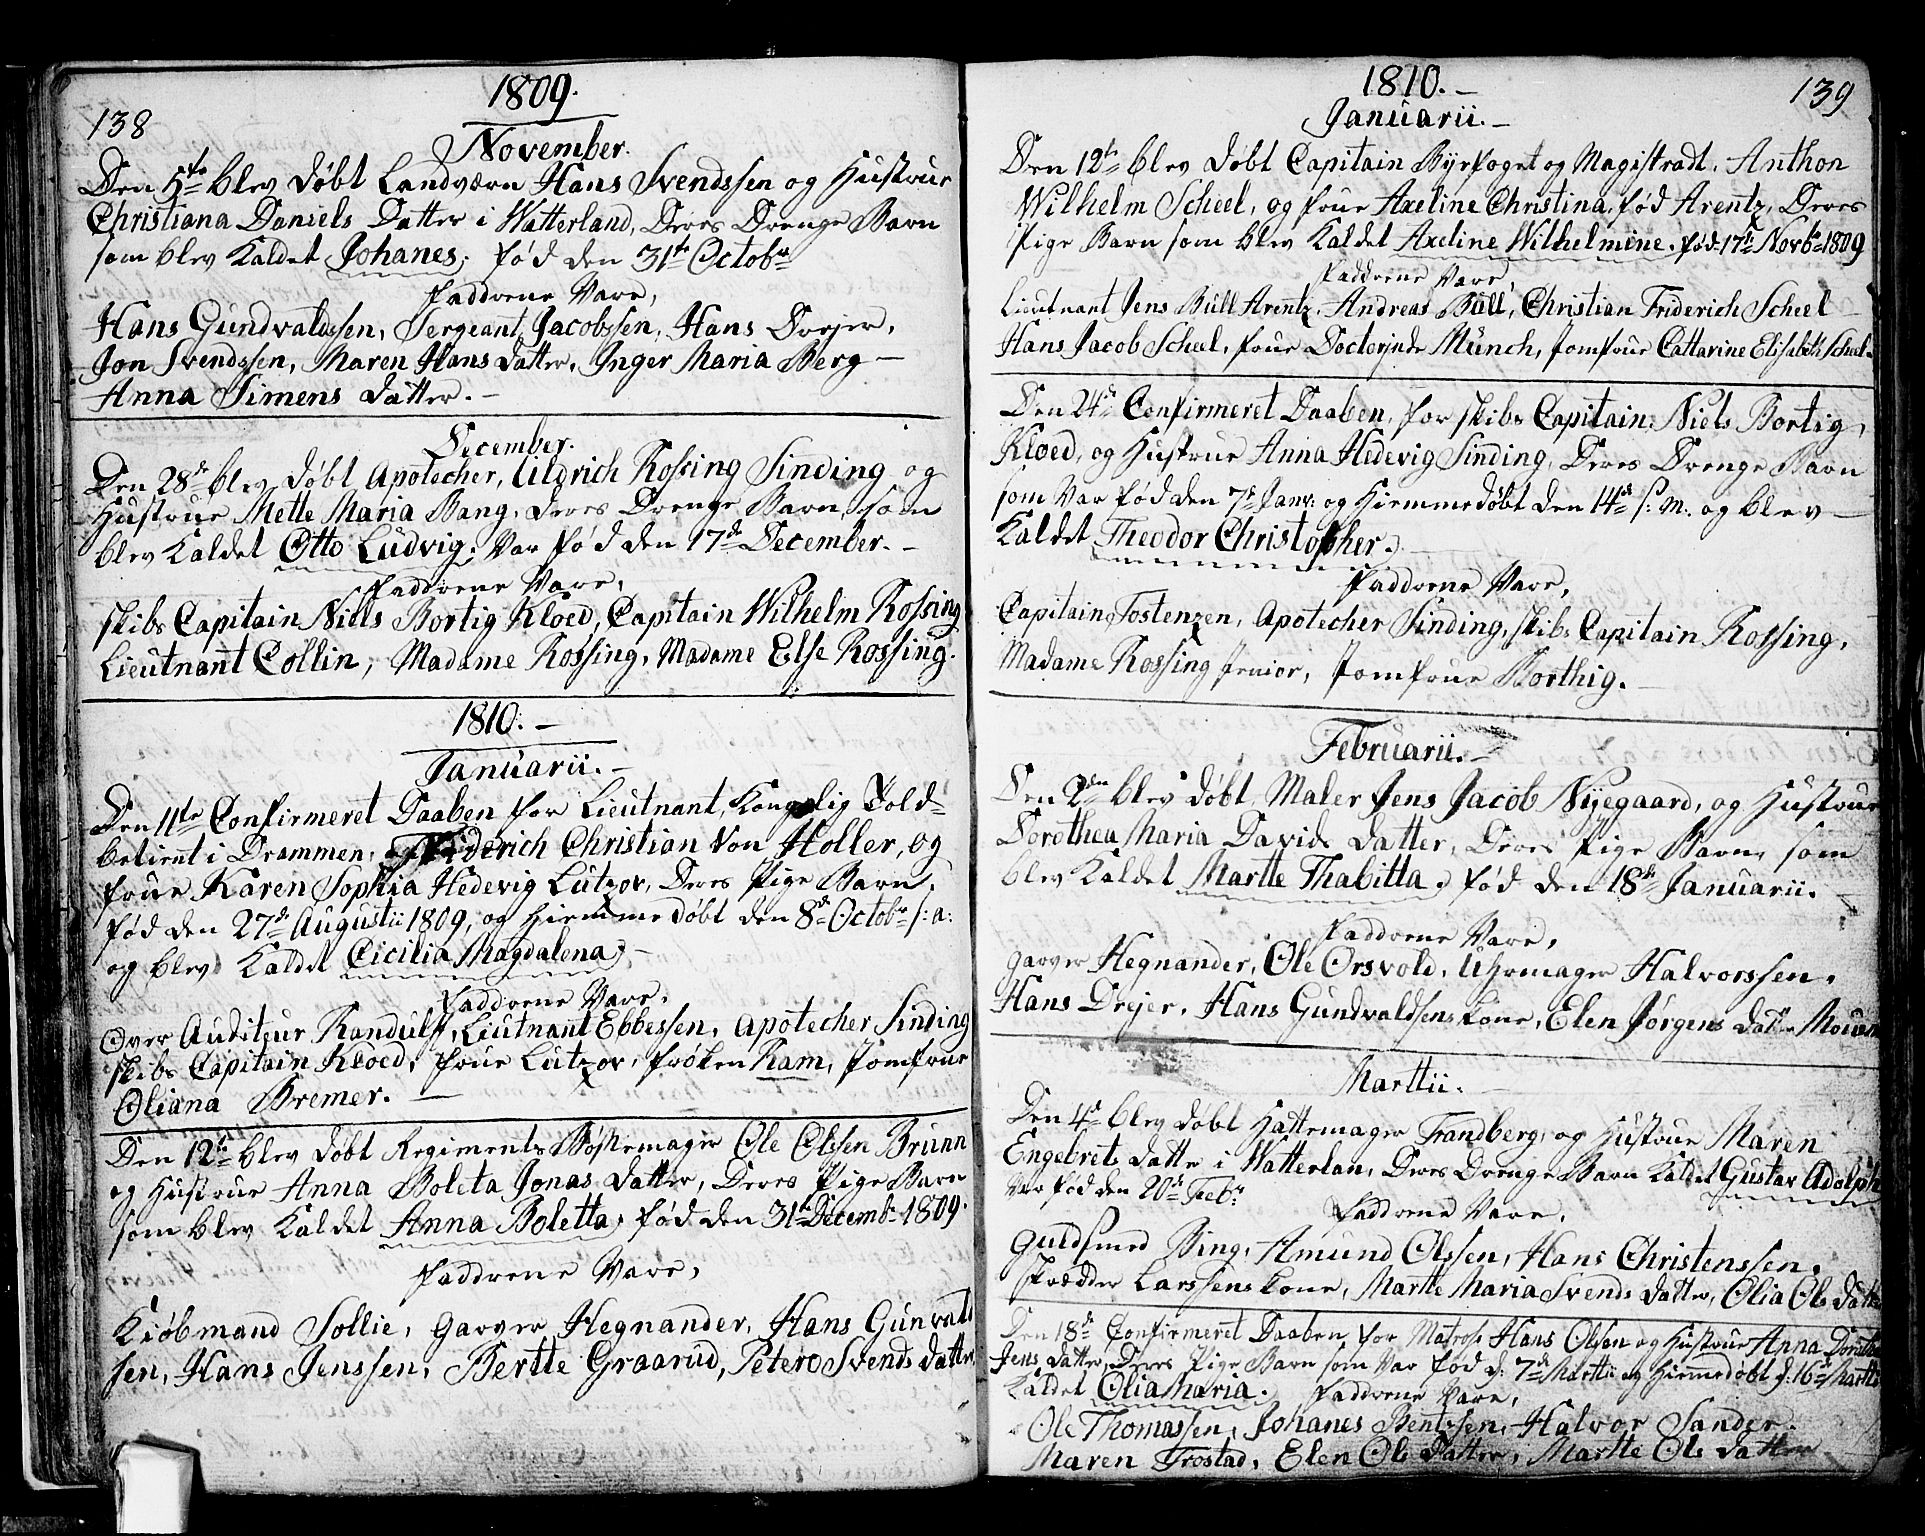 138
1809.
November.
Den 5te blev døbt Landværn Hans Svendssen og Hustrue
Christiana Daniels Datter i Watterland, Deres Drenge Barn
som blev Kaldet Johanes, fød den 31te Octobr
Faddrene Vare,
Hans Gundvaldssen, Sergeant Jacobssen, Hans Drejer,
Jon Svendssen, Maren Hans datter, Inger Maria Berg –
Anna Simens datter. –
December.
Den 28de blev døbt Apotecher, Uldrich Rossing Sinding og
Hustrue Mette Maria Bang, deres Drenge Barn, som
blev Kaldet Otto Ludvig, Var fød den 17de December. –
Faddrene Vare,
Skibs Capitain Niels Bortig Kloed, Capitain Wilhelm Rossing
Lieutnant Collin, Madame Rossing, Madame Else Rossing.
1810. –
Januarii. –
Den 11te Confirmeret Daaben for Lieutnant, Kongelig Told-
betient i Drammen, Friderich Christian Von Holler, og
frue Karen Sophia Hedevig Lutzov, Deres Pige Barn,
fød den 27de Augustii 1809, og Hiemmedøbt den 8de Octobr s: a:
og blev Kaldet Cicilia Magdalena, –
Faddrene Vare,
Over Auditeur Randulff, Lieutnant Ebbessen, Apotecher Sinding
Skibs Capitain Kloed, frue Lutzov, frøken Ram, Jomfrue
Oliana Bremer. –
Den 12te blev døbt Regiments Bøssemager Ole Olssen Brunn
og Hustrue Anna Boleta Jonas datter, Deres Pige Barn
som blev Kaldet Anna Boletta, fød den 31te Decembr 1809.
Faddrene Vare,
Kiøbmand Sollie, Garver Hegnander, Hans Gunvald
sen, Hans Jenssen, Bertte Graarud, Petero Svends datter
139
1810. –
Januarii. –
Den 12te blev døbt Capitain Byefoget og Magistradt, Anthon
Wilhelm Scheel, og frue Axeline Christina, fød Arentz, Deres
Pige Barn som blev Kaldet Axeline Wilhelmine. fød 17de Novbr 1809
Faddrene Vare,
Lieutnant Jens Bull Arentz, Andreas Bull, Christian Friderich Scheel
Hans Jacob Scheel, frue Doctorinde Münch, Jomfrue Cattarine Elisabeth Scheel.
Den 24de Confirmeret Daaben, for Skibs Capitain, Niels Bortig,
Kloed, og Hustrue Anna Hedevig Sinding, Deres Drenge Barn
som Var fød den 7de Janv: og Hiemmedøbt den 14de s: m. og blev –
Kaldet Theodor Christopher.
Faddrene Vare,
Capitain Tostenzen, Apotecher Sinding, Skibs Capitain Rossing,
Madame Rossing Jenior, Jomfrue Borthig. –
Februarii. –
Den 2den blev døbt Maler Jens Jacob Nyegaard, og Hustrue
Dorothea Maria Davids datter, Deres Pige Barn, som
blev Kaldet Martte Thabitta, fød den 18de Januarii. –
Faddrene Vare,
Garver Hegnander, Ole Orsvold, Uhrmager Halvorssen,
Hans Drejer, Hans Gundvaldsens Kone, Elen Jørgens datter
Marttii. –
Den 4de blev døbt Hattemager Trandberg, og Hustrue Maren
Engebrets datter i Watterlan, Deres Drenge Barn Kaldet Gustav Adolph
Var fød den 20de Febr
Faddrene Vare,
Guldsmed Bing, Amund Olssen, Hans Christenssen,
Skrædder Larssens Kone, Martte Maria Svends datter, Olia Ols datter
Den 18de Confirmeret Daaben for Matros Hans Olsen og Hustrue Anna
Jens datter, Deres Pige Barn som Var fød d: 7de Marttii og Hiemmedøbt d: 16de Marttii
Kaldet Olia Maria. Faddrene Vare,
Ole Thomassen, Johanes Bentzsen, Halvor Sander
Maren Trostad, Elen Ols Datter, Martte Ols datter